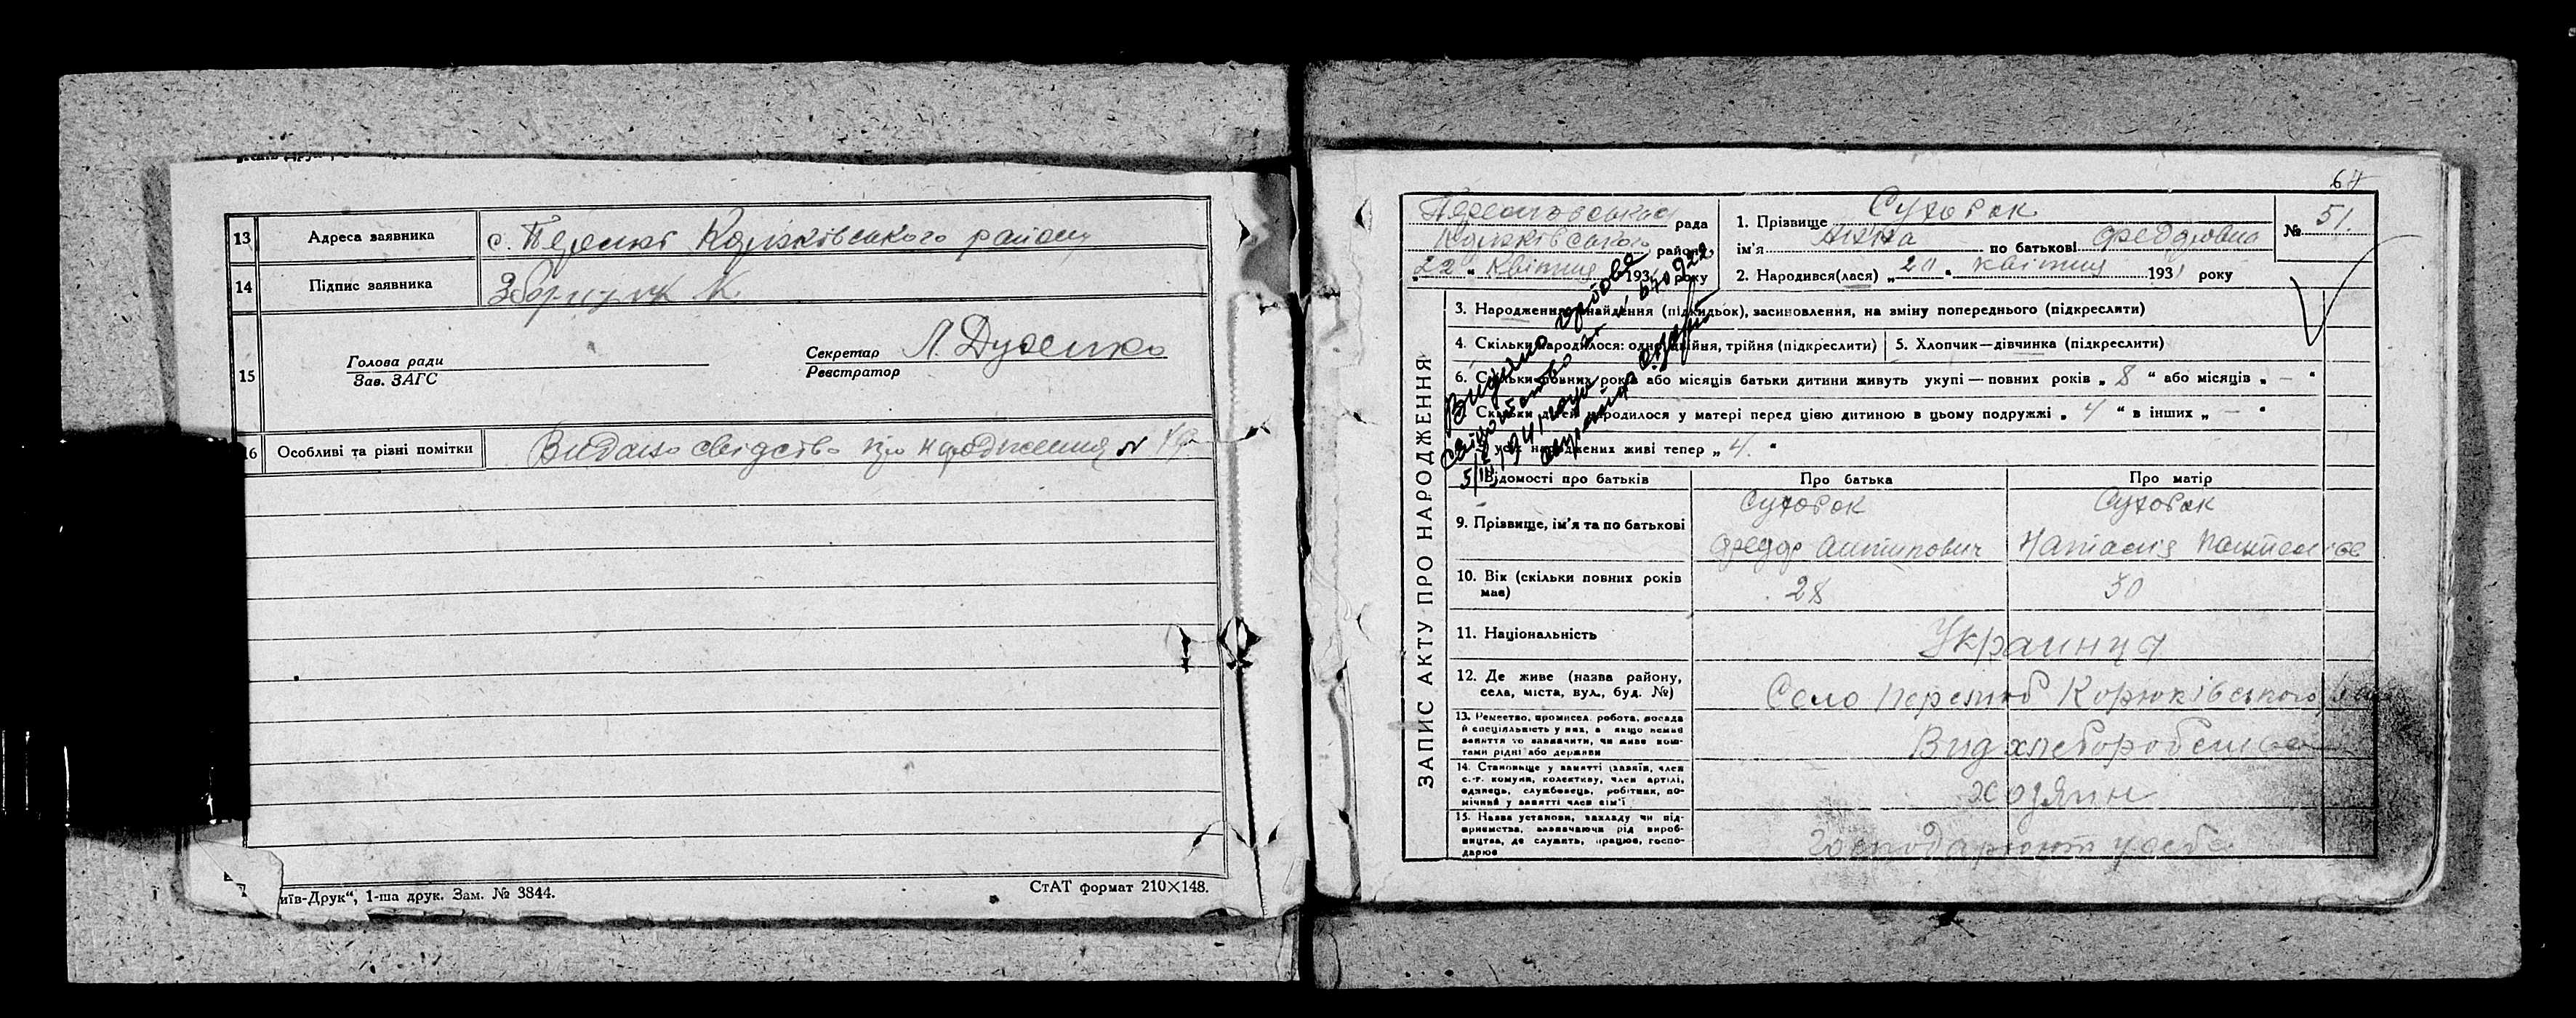 13 Адреса заявника с. Перелюб Корюківського району
14 Підпис заявника
15 Голова ради
Зав. ЗАГС
Секретар
Реєстратор
16 Особливі та різні помітки Видано свідство про народження №
иїв-Друк“, 1-ша друк. Зам. № 3844.
СтАТ формат 210×148.
64
рада
Корюківського району
„22“ Квітня 1931 року
1. Прізвище Суховак
ім'я Анна по батькові Федоровна
2. Народився(лася) „20“ квітня 1931 року
№ 51.
ЗАПИС АКТУ ПРО НАРОДЖЕННЯ
3. Народження, знайдення (підкидьок), засиновлення, на зміну попереднього (підкреслити)
4. Скільки народилося: одно, двійня, трійня (підкреслити)
5. Хлопчик—дівчинка (підкреслити)
6. Скільки повних років або місяців батьки дитини живуть укупі — повних років „ 8 “ або місяців „ — “
Скільки дітей народилося у матері перед цією дитиною в цьому подружжі „ 4 “ в інших „ — “
народжених живі тепер „ 4. “
Видано
Відомості про батьків
Про батька
Про матір
9. Прізвище, ім'я та по батькові
Суховак
Федор Антипович
Суховак
Наталія
10. Вік (скільки повних років має)
28
30
11. Національність
Украинци
12. Де живе (назва району, села, міста, вул., буд. №)
Село Перелюб Корюківського
13. Ремество, промисел, робота, посада й спеціяльність у них, а якщо немає заняття то зазначити, чи живе коштами рідні або держави
14. Становище у занятті (хазяїн, член с.-г. комуни, колективу, член артілі, одинець, службовець, робітник, помічний у занятті член сім'ї
хозяин
15. Назва установи, закладу чи підприємства, зазначаючи рід виробництва, де служить, працює, господарює
Господарюют у себе